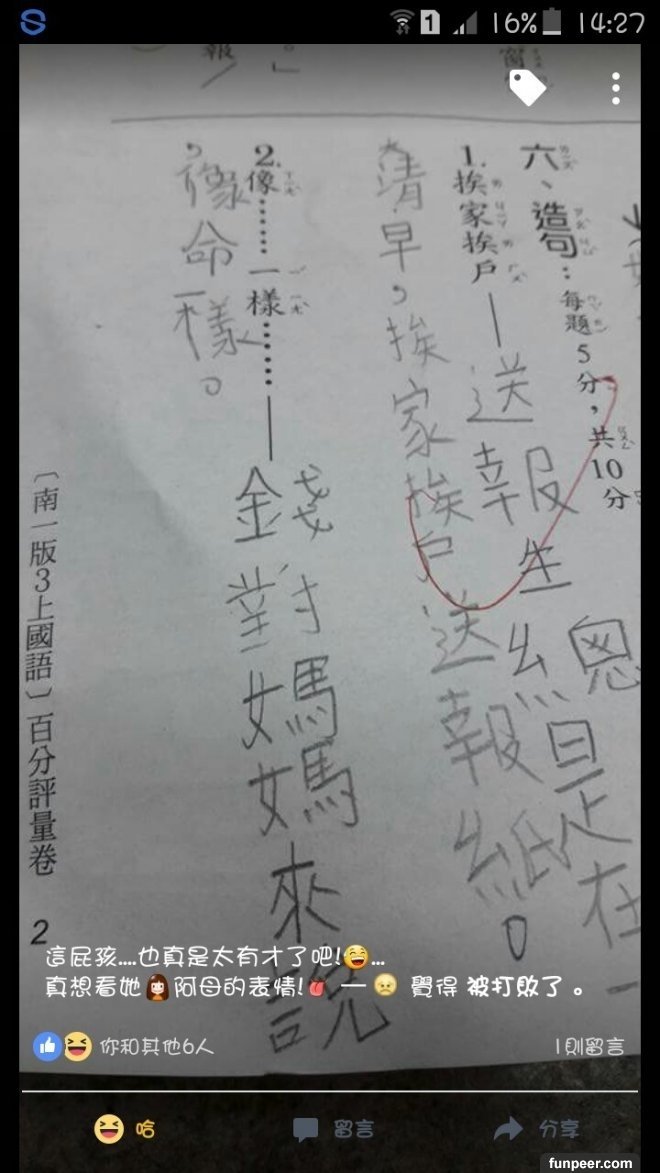 1 16% 14:27
窗
。」
報
六、造句：每題5分，共10分
1.挨家挨戶—送報生總是在一
大清早，挨家挨戶送報紙。
2.像……一樣……—錢對媽媽來說
，像命一樣。
〔南一版3上國語〕百分評量卷
2
這屁孩....也真是太有才了吧!😄...
真想看她👩阿母的表情!👅 — 😣 覺得 被打敗了。
你和其他6人
1則留言
哈
留言
分享
funpeer.com